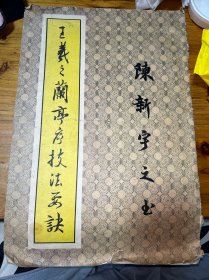 王羲之蘭亭序技法要訣
陳新宇之書